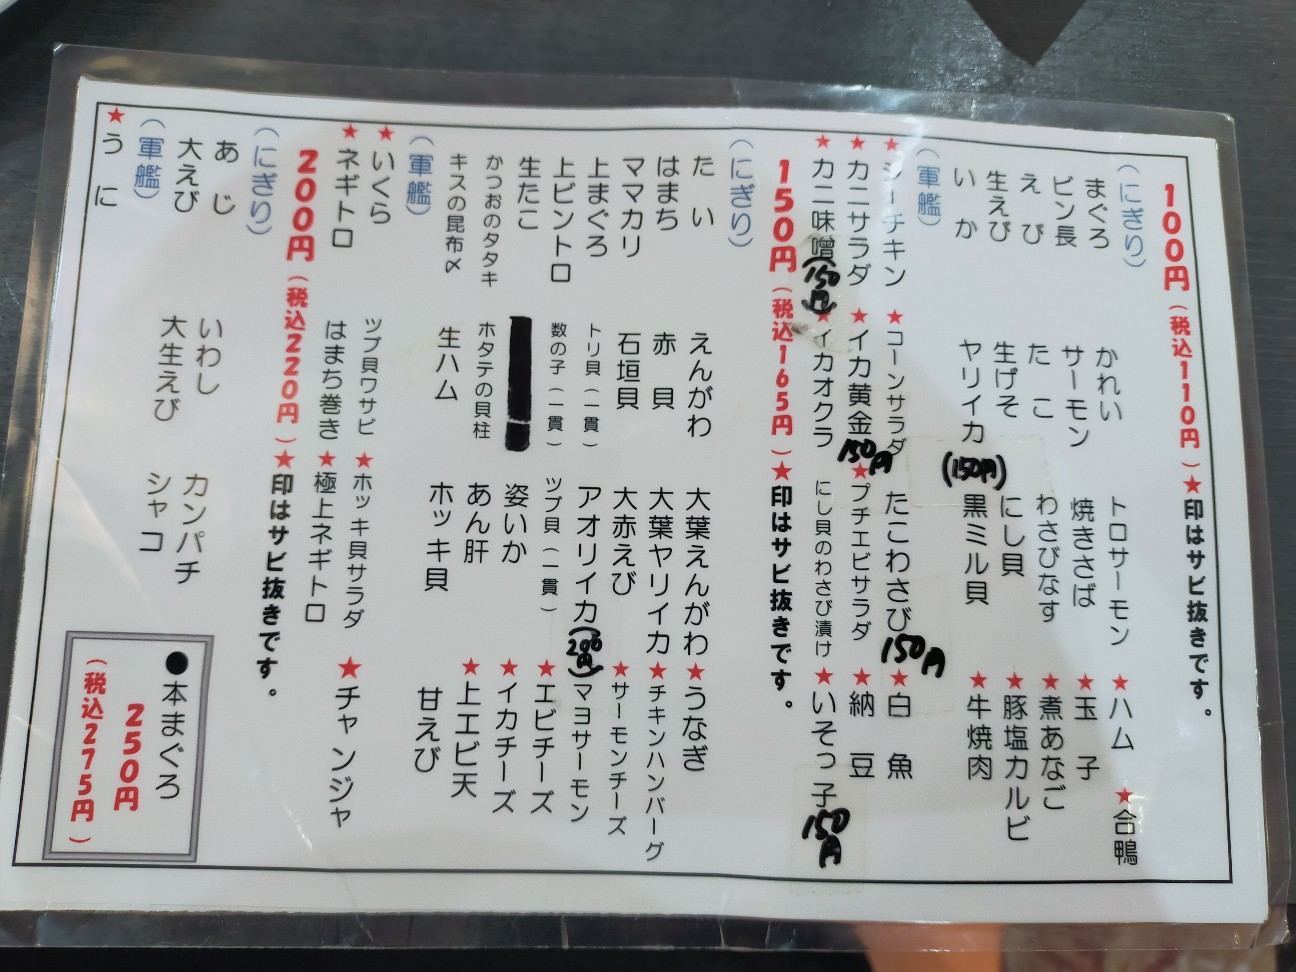 100円（税込110円）★印はサビ抜きです。
（にぎり）
まぐろ
ビン長
えび
生えび
いか
かれい
サーモン
たこ
生げそ
ヤリイカ
(150円)
トロサーモン
焼きさば
わさびなす
にし貝
黒ミル貝
★ハム
★合鴨
★玉子
★煮あなご
★豚塩カルビ
★牛焼肉
（軍艦）
★シーチキン
★カニサラダ
★カニ味噌
(150円)
★コーンサラダ
★イカ黄金
150円
★イカオクラ
たこわさび
150円
★プチエビサラダ
にし貝のわさび漬け
★白魚
★納豆
★いそっ子
150円
150円（税込165円）★印はサビ抜きです。
（にぎり）
たい
はまち
ママカリ
上まぐろ
上ビントロ
生たこ
かつおのタタキ
キスの昆布〆
えんがわ
赤貝
石垣貝
トリ貝（一貫）
数の子（一貫）
ホタテの貝柱
生ハム
大葉えんがわ
大葉ヤリイカ
大赤えび
アオリイカ
(200円)
ツブ貝（一貫）
姿いか
あん肝
ホッキ貝
★うなぎ
★チキンハンバーグ
★サーモンチーズ
マヨサーモン
★エビチーズ
★イカチーズ
★上エビ天
甘えび
（軍艦）
★いくら
★ネギトロ
ツブ貝ワサビ
はまち巻き
★ホッキ貝サラダ
★極上ネギトロ
★チャンジャ
200円（税込220円）★印はサビ抜きです。
（にぎり）
あじ
大えび
いわし
大生えび
カンパチ
シャコ
（軍艦）
★うに
●本まぐろ
250円
（税込275円）